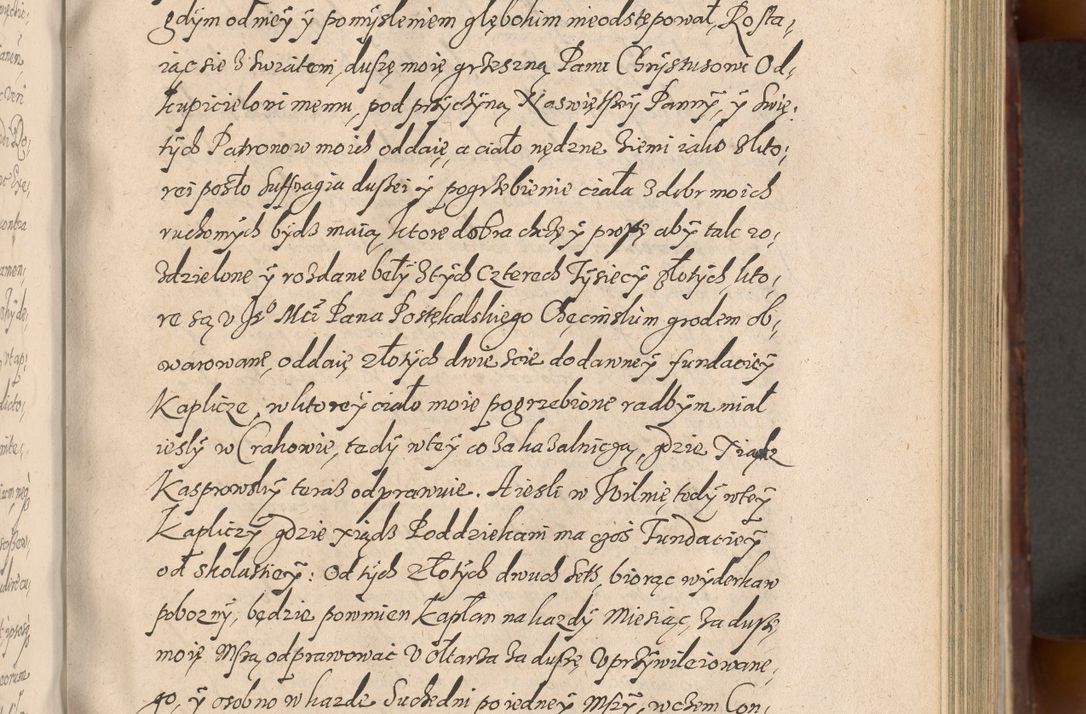 gdym od niey y pomysleniem głębokim nieodstępował, Rosta,
iąc sie z swiatem, duszę moię grzeszną Panu Chrystusowi Od,
kupicielowi memu, pod przyczyną Naswiętszey Panny, y Swię,
tych Patronow moich oddaię, a ciało nędzne Ziemi iako z kto,
rei poszło Suffragia duszei y pogrzebienie ciała z dobr moich
ruchomych bydz maią, ktore dobra chcę y proszę aby tak ro,
zdzielone y rozdane były z tych Czterech Tysięcy złotych kto,
re są v Js° Mci Pana Postękalskiego Chęcinskim grodem ob,
warowane, oddaię złotych dwie scie do dawney fundaciey
Kaplicze, w ktorey ciało moie pogrzebione radbym miał
iesly w Crakowie, tedy w tey co za kazalnicą, gdzie Xiądz
Kasprowsky teraz odprawuie. A iesli w Wilnie, tedy w tey
Kapliczy gdzie xiądz Poddziekani ma czos Fundaciey
od skolastiey: Od tych złotych dwuch set, biorąc wyderkaw
pobozny, będzie powinien Kapłan na kazdy Miesiąc, za duszę
moię Mszą odprawować v ołtarza za duszę vprzywileiowane,
go, y osobno w kazde Suchedni po iedney Mszy, w czem Con,